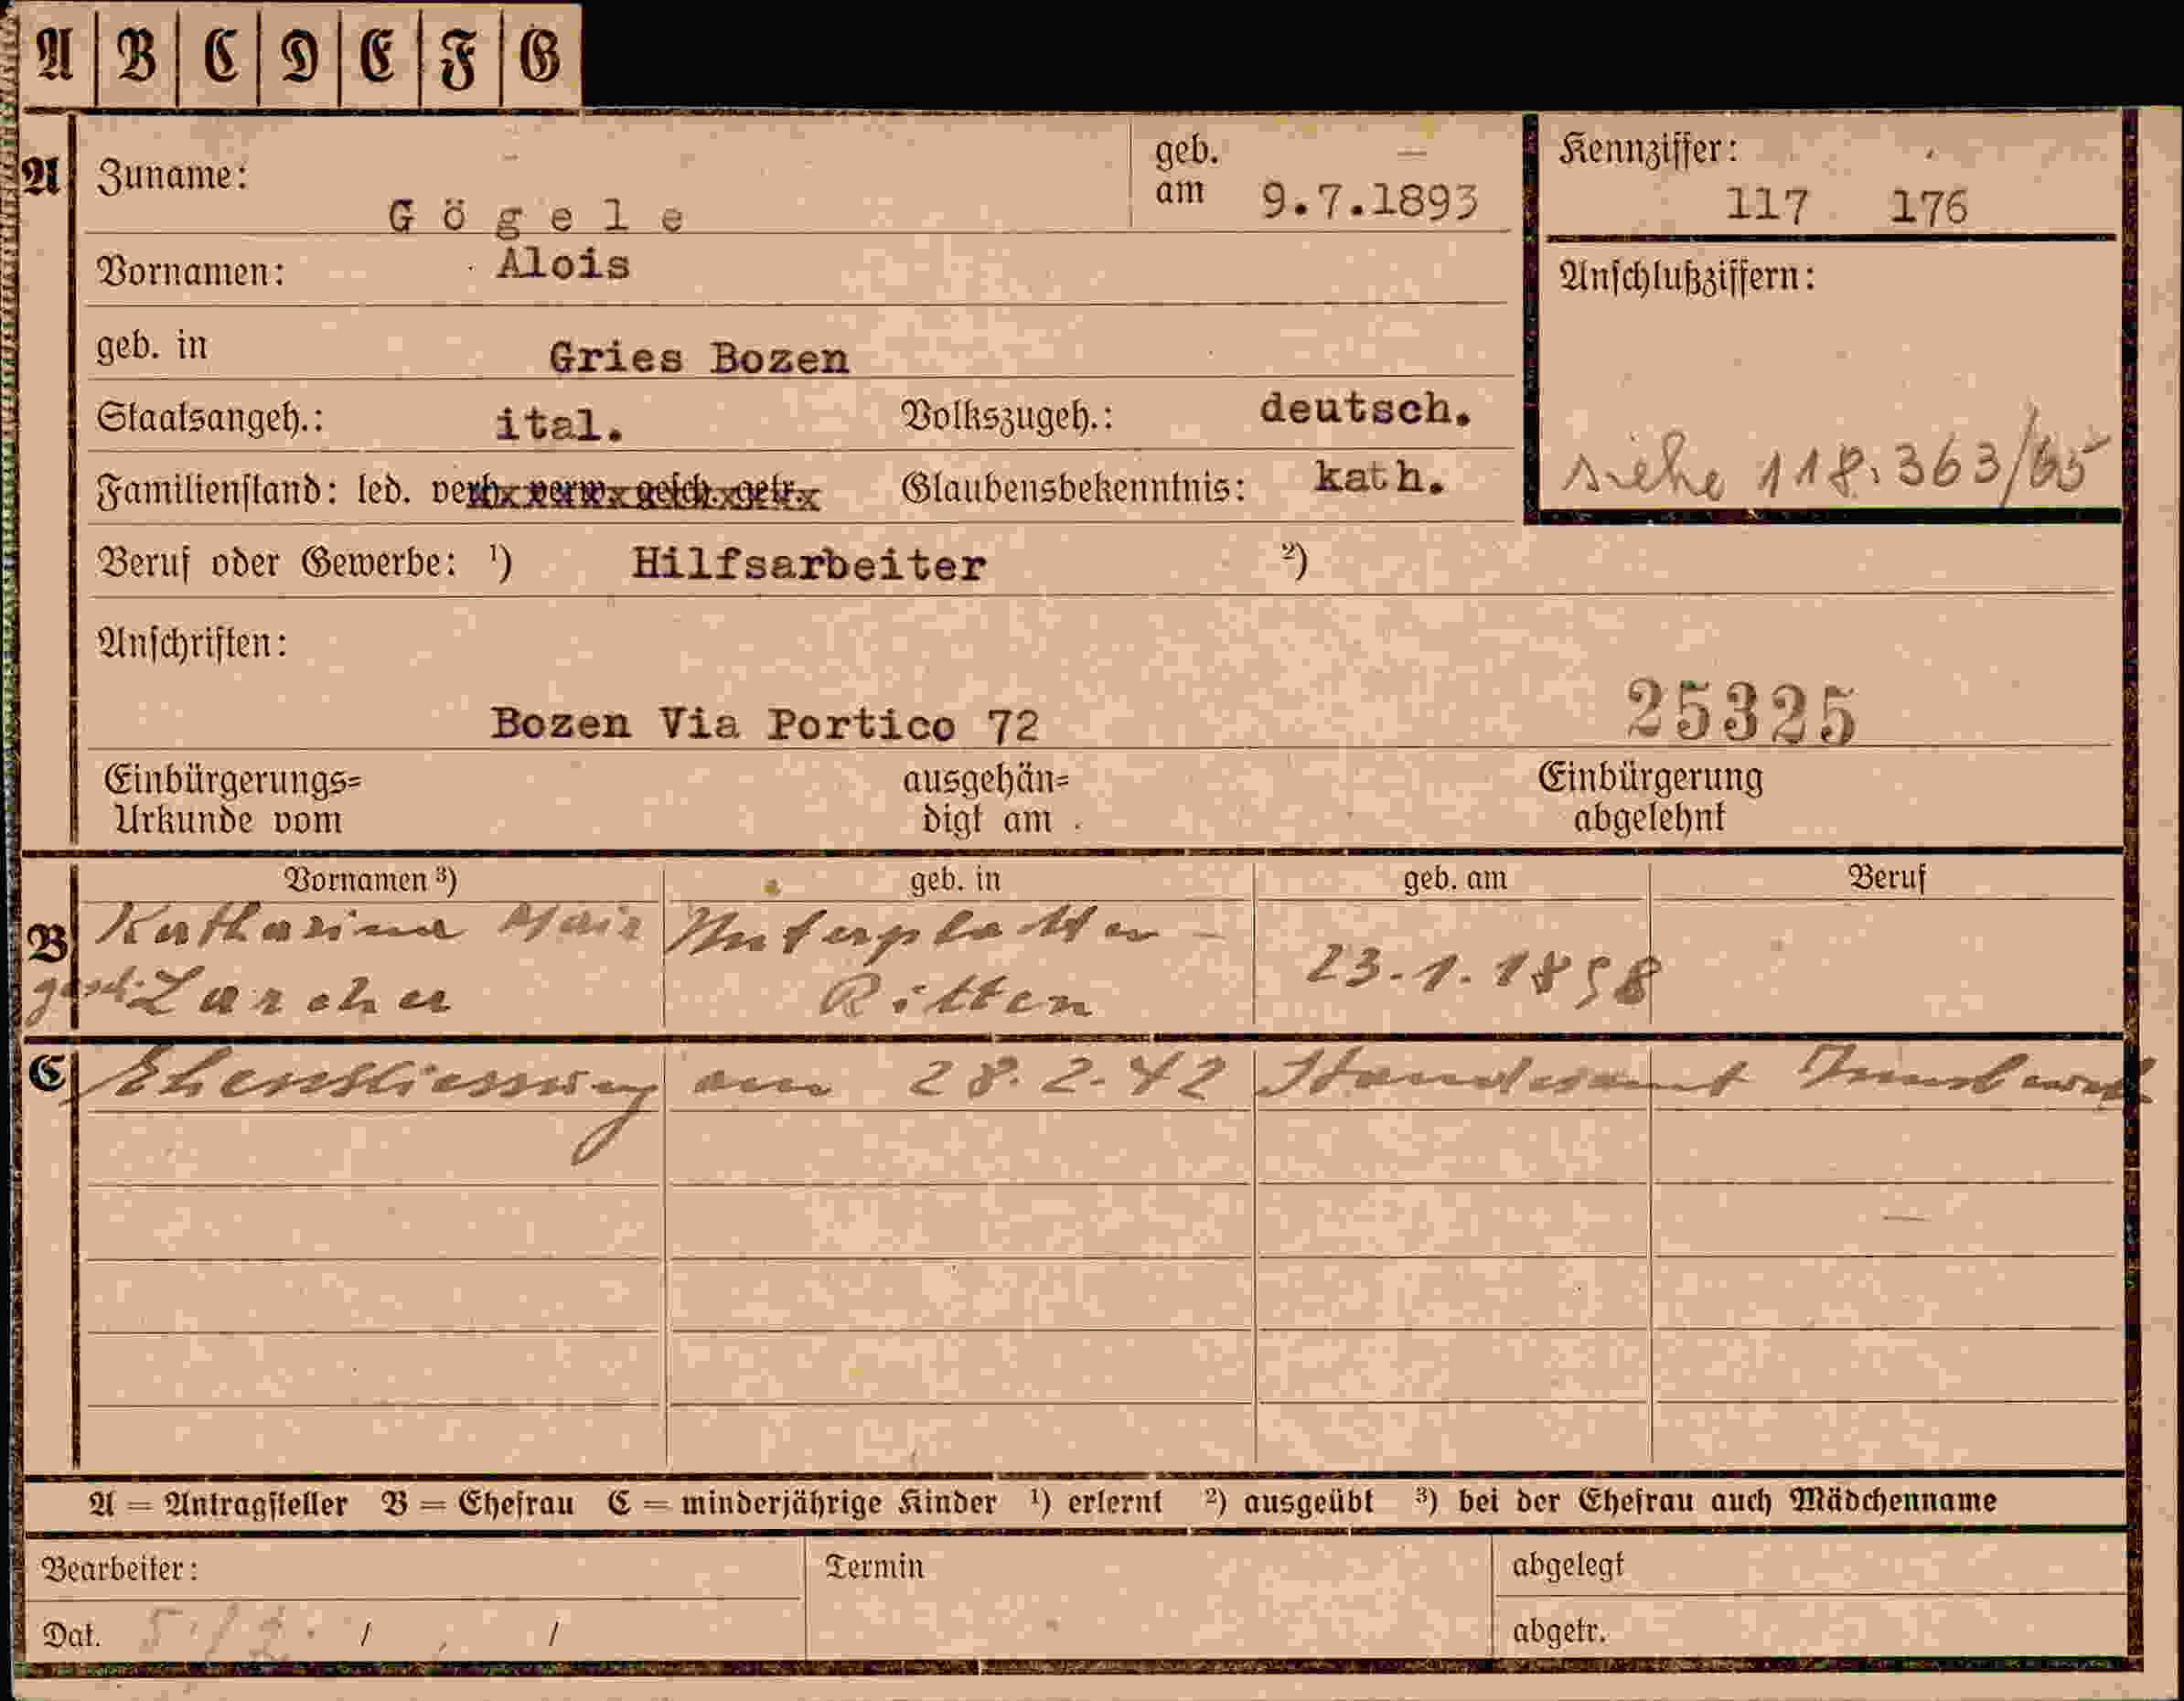 A B C D E F G
A Zuname: G ö g e l e geb. am 9.7.1893 Kennziffer: 117 176
Vornamen: Alois Anschlußziffern:
geb. in Gries Bozen
Staatsangeh.: ital. Volkszugeh.: deutsch.
Familienstand: led. verh. verw. gesch. getr. Glaubensbekenntnis: kath. siehe 118.363/65
Beruf oder Gewerbe: ¹) Hilfsarbeiter ²)
Anschriften:
Bozen Via Portico 72 25325
Einbürgerungs= ausgehän= Einbürgerung
Urkunde vom digt am abgelehnt
Vornamen ³) geb. in geb. am Beruf
B Katharina Mair Unterplatten -
gesch. Larcher Ritten 23.1.1898
C Eheschliessung am 28.2.42 Standesamt Innsbruck
A = Antragsteller B = Ehefrau C = minderjährige Kinder ¹) erlernt ²) ausgeübt ³) bei der Ehefrau auch Mädchenname
Bearbeiter: Termin abgelegt
Dat. / / abgetr.